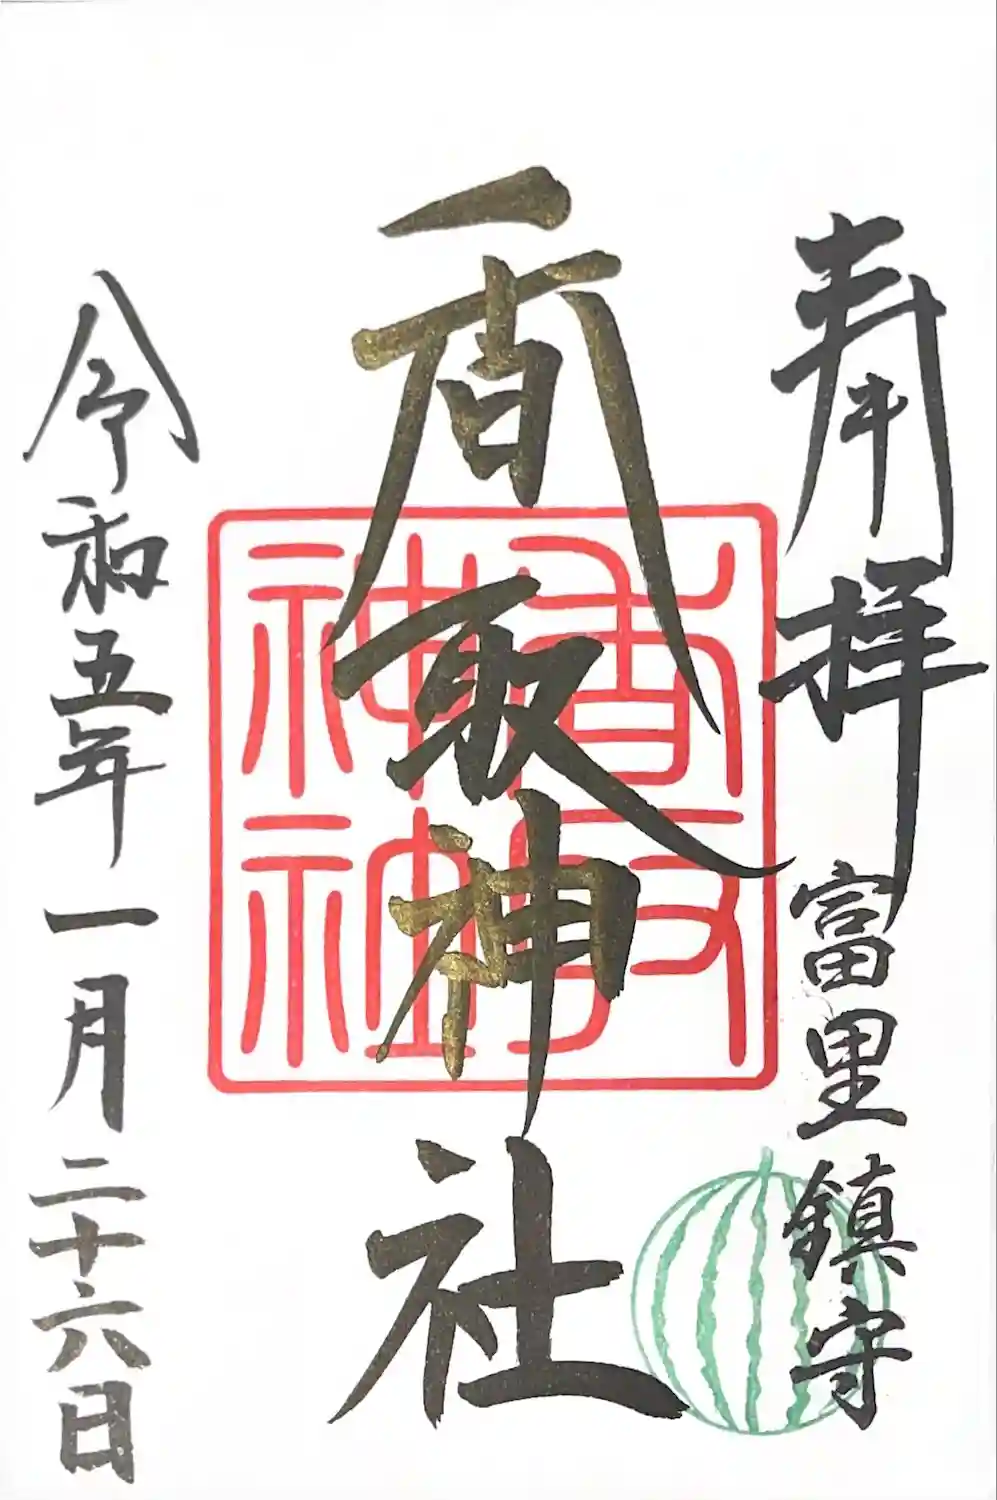 奉拝
富里鎮守
香取神社
香取神社
令和五年一月二十六日